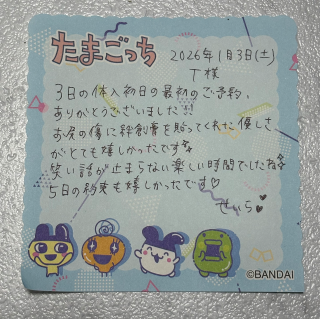 たまごっち
2026年1月3日(土)
T様
3日の体入初日の最初のご予約、
ありがとうございました!!
お尻の傷に絆創膏を貼ってくれた優しさ
がとても嬉しかったです
笑い話が止まらない楽しい時間でしたね
5日の約束も嬉しかったです♡
せいら♥
©BANDAI